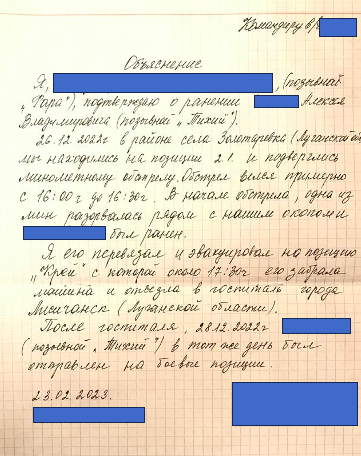 Командиру в/ч
Объяснение
Я, , (позывной
„Фара"), подтверждаю о ранении Алексея
Владимировича (позывной „Тихий").
26.12.2022г в районе села Золотаревка (Луганской обл)
мы находились на позиции 21. и подверглись
минометному обстрелу. Обстрел велся примерно
с 16:00ч до 16:30ч. В начале обстрела, одна из
мин разорвалась рядом с нашим окопом и
был ранен.
Я его перевязал и эвакуировал на позицию
„Крей" с которой около 17:30ч его забрала
машина и отвезла в госпиталь города
Лисичанск (Луганской области).
После госпиталя, 28.12.2022г
(позывной „Тихий") в тот же день был
отправлен на боевые позиции.
23.02.2023.